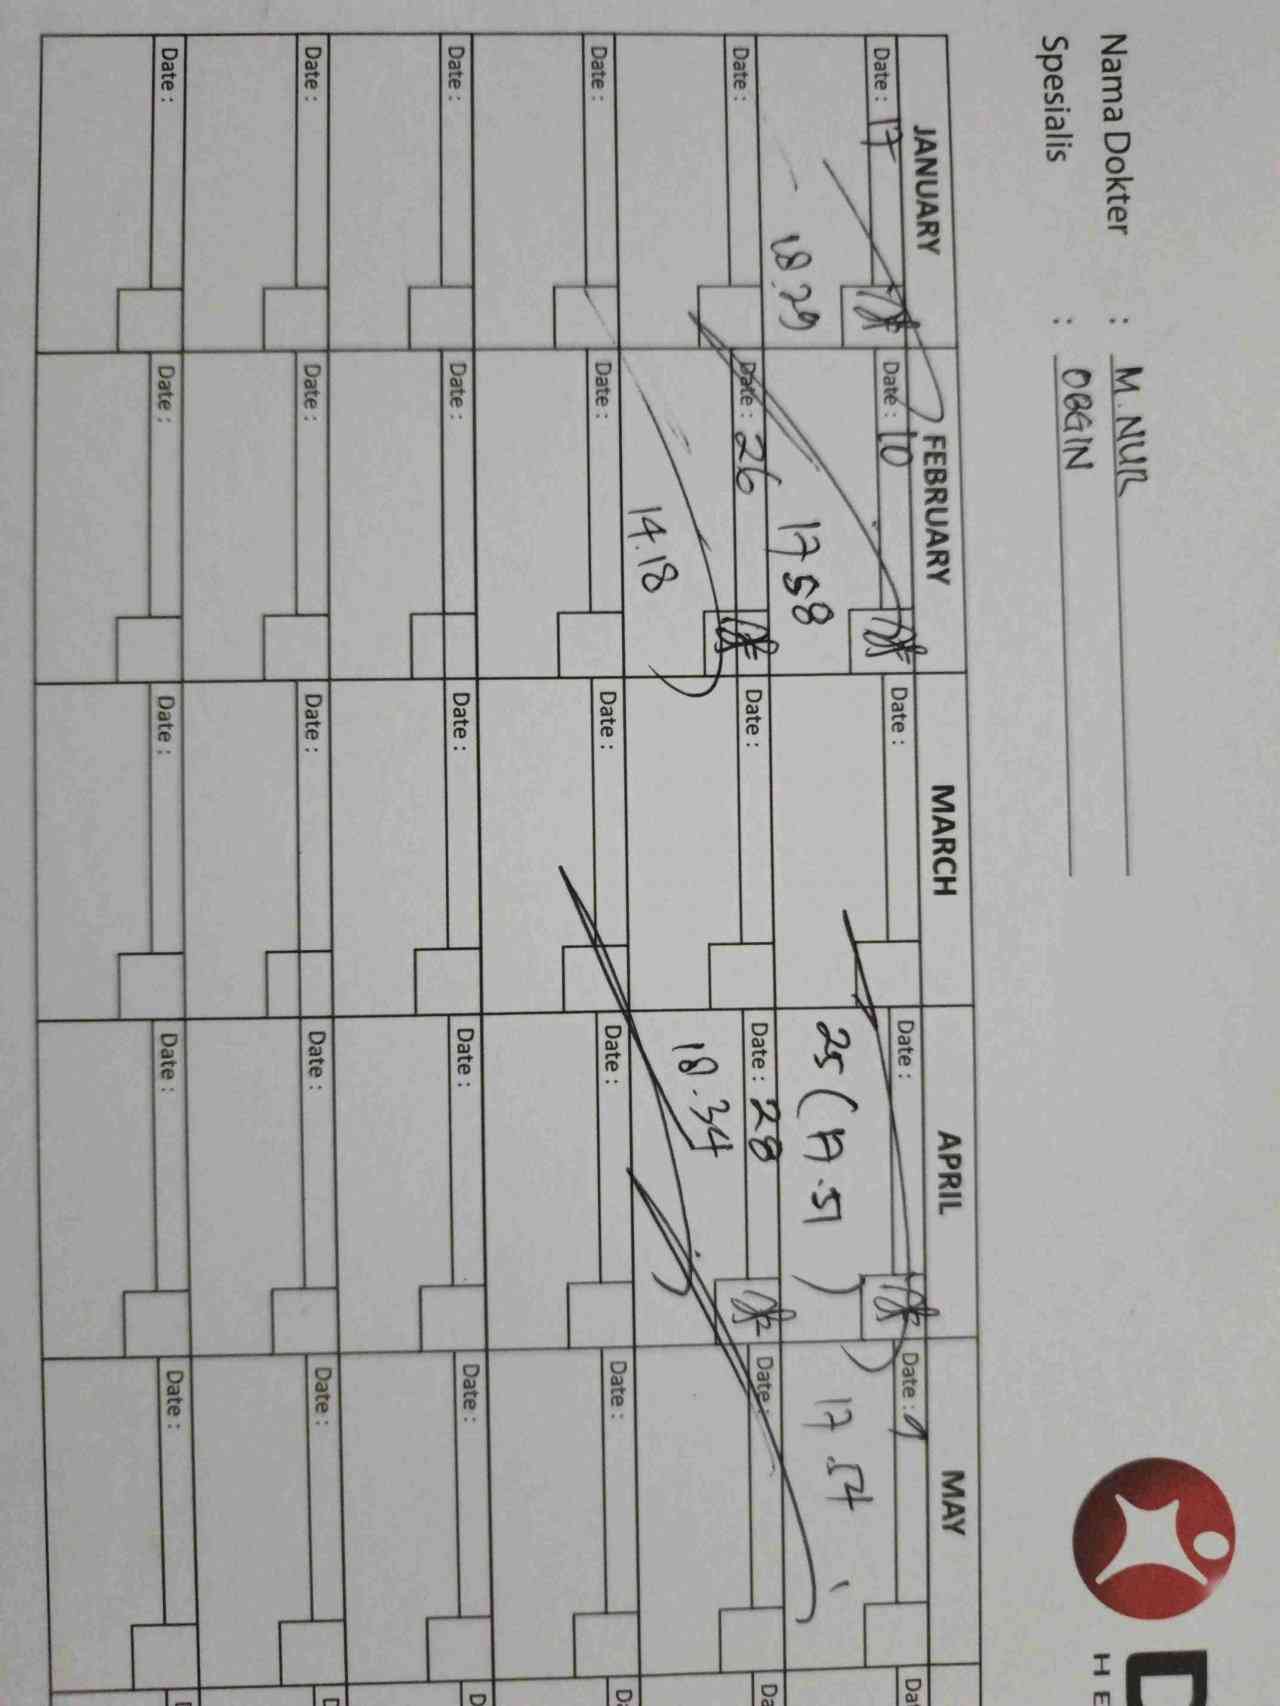 Nama Dokter : M. NUR
Spesialis : OBGIN
HE
JANUARY FEBRUARY MARCH APRIL MAY
Date : 17 Date : 10 Date : Date : Date : 9 Dat
18.29 17 58 25 (17.51) 17.54
Date : Date : 26 Date : Date : 28 Date : Da
14.18 18.34
Date : Date : Date : Date : Date : Da
Date : Date : Date : Date : Date : D
Date : Date : Date : Date : Date : D
Date : Date : Date : Date : Date : D